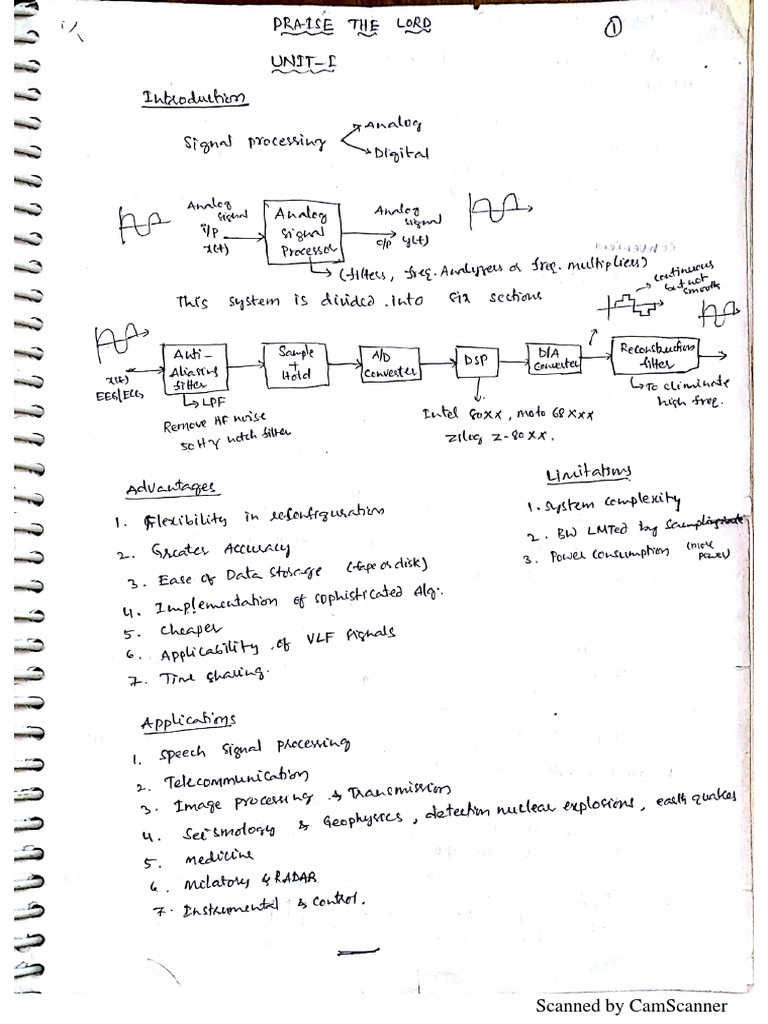 PRAISE THE LORD
1
UNIT-I
Introduction
Signal processing
Analog
Digital
Analog Signal
i/p
x(t)
Analog
Signal
Processor
Analog
Signal
o/p y(t)
(filters, freq. Analyzers or freq. multipliers)
This system is divided into six sections
continuous
but not
smooth
x(t)
EEG/ECG
Anti-
Aliasing
filter
Sample
+
Hold
A/D
Converter
DSP
D/A
Converter
Reconstruction
filter
LPF
Remove HF noise
50 Hz notch filter
Intel 80XX, moto 68XXX
Zilog Z-80XX.
To eliminate
high freq.
Advantages
1. Flexibility in reconfiguration
2. Greater Accuracy
3. Ease of Data Storage (tape or disk)
4. Implementation of sophisticated Alg.
5. Cheaper
6. Applicability of VLF signals
7. Time sharing.
Limitations
1. System complexity
2. BW LMTed by Sampling rate
3. Power Consumption (more power)
Applications
1. Speech Signal Processing
2. Telecommunication
3. Image processing & Transmission
4. Seismology & Geophysics, detection nuclear explosions, earth quakes
5. medicine
6. Milatory & RADAR
7. Instrumental & control.
Scanned by CamScanner